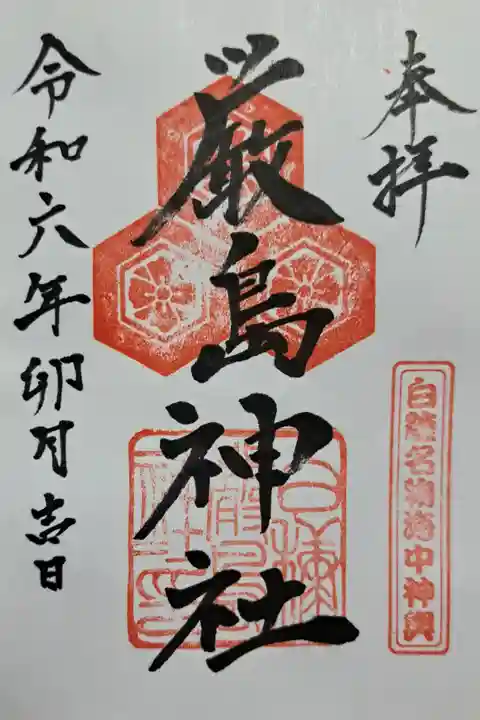 奉拝
白糠名物海中神輿
厳島神社
令和六年卯月吉日